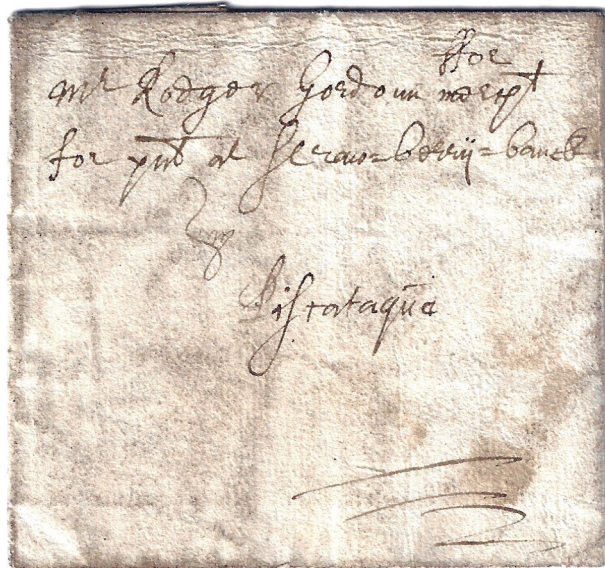 ffor
Mr Rodger Gordoun merct
for pnt at Straw=berrij=banck
Piscataqua